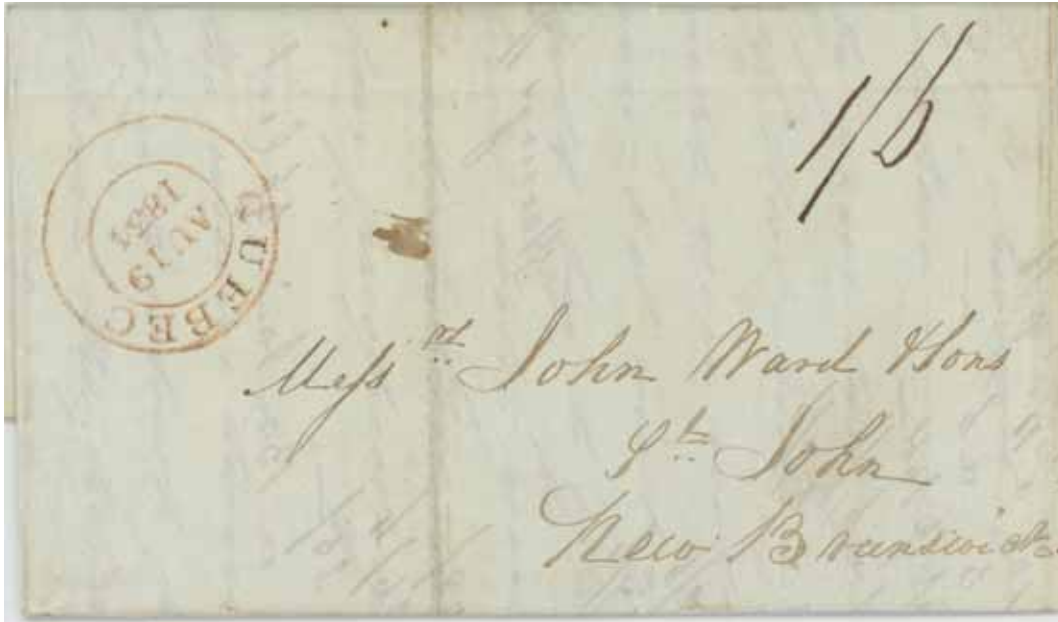 1/6
QUEBEC
AU 19
Messrs John Ward & Sons
St John
New Brunswick